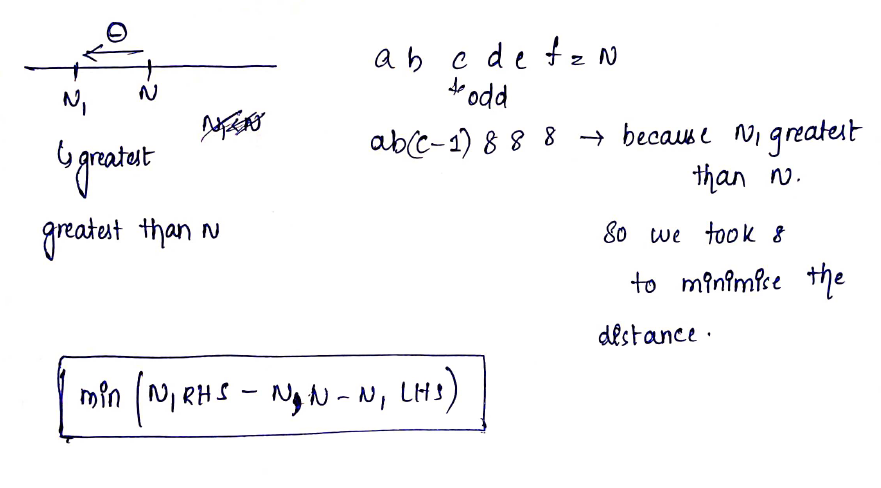 ⊖
N₁ N
↳ greatest
greatest than N
a b c d e f = N
↓ odd
ab(c-1) 8 8 8 → because N₁ greatest
than N.
So we took 8
to minimise the
distance.
min (N₁ RHS - N, N - N₁ LHS)